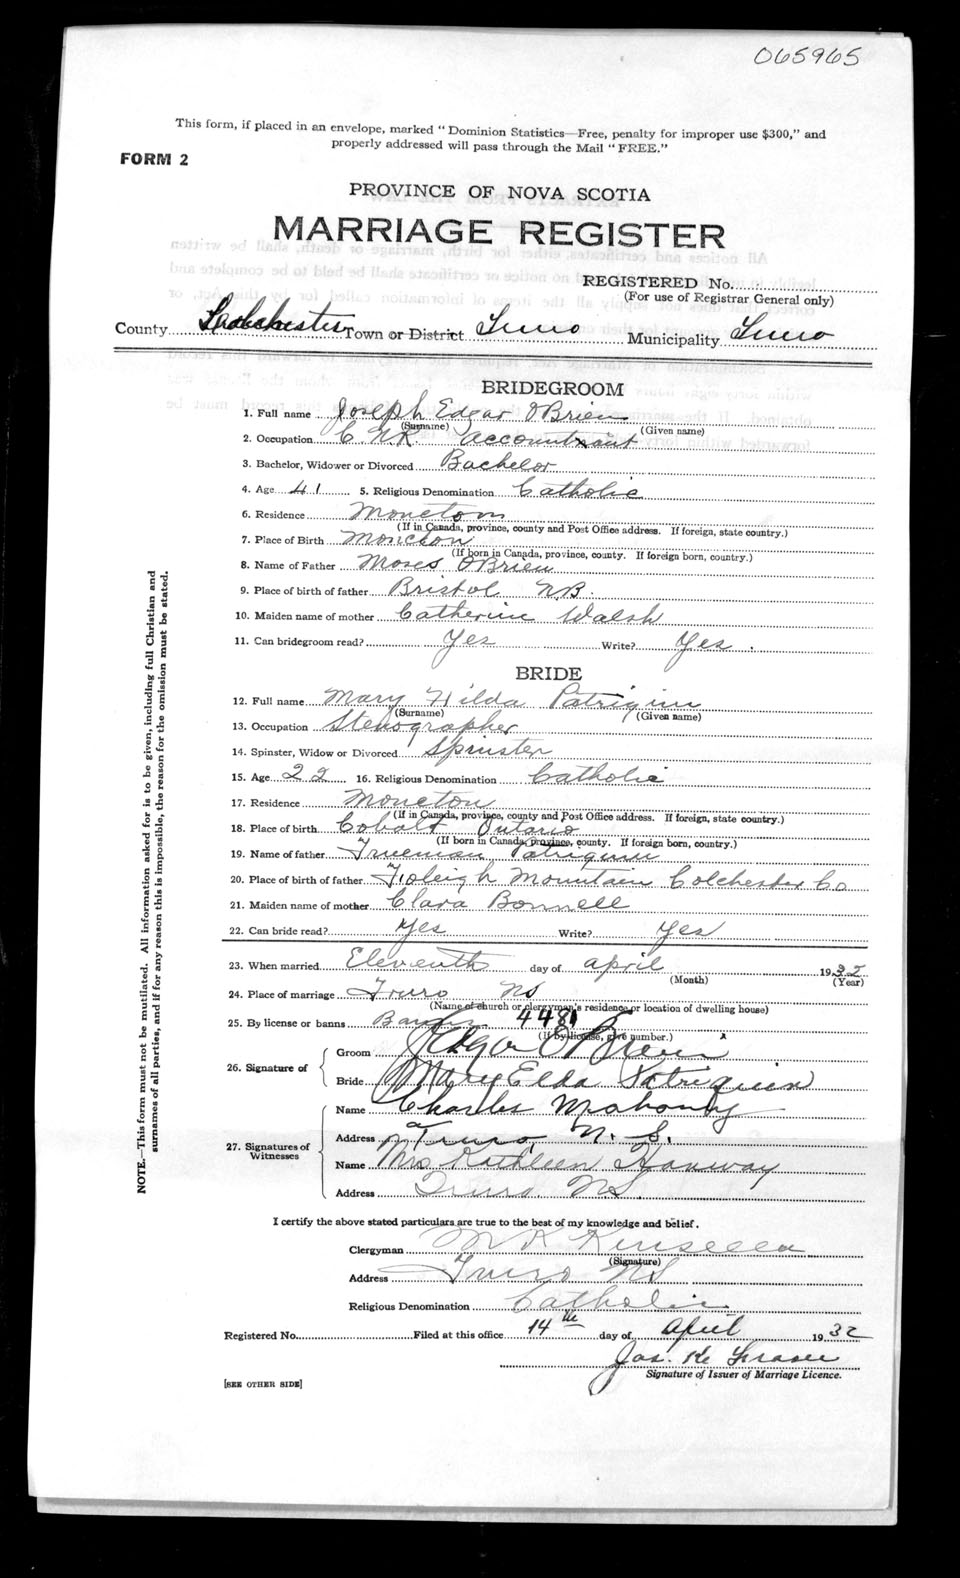 065965
This form, if placed in an envelope, marked "Dominion Statistics—Free, penalty for improper use $300," and
properly addressed will pass through the Mail "FREE."
FORM 2
PROVINCE OF NOVA SCOTIA
MARRIAGE REGISTER
REGISTERED No.
(For use of Registrar General only)
County Colchester Town or District Truro Municipality Truro
BRIDEGROOM
1. Full name Joseph Edgar O'Brien
(Surname) (Given name)
2. Occupation C.N.R. Accountant
3. Bachelor, Widower or Divorced Bachelor
4. Age 41 5. Religious Denomination Catholic
6. Residence Moncton
(If in Canada, province, county and Post Office address. If foreign, state country.)
7. Place of Birth Moncton
(If born in Canada, province, county. If foreign born, country.)
8. Name of Father Moses O'Brien
9. Place of birth of father Bristol N.B.
10. Maiden name of mother Catherine Walsh
11. Can bridegroom read? Yes Write? Yes.
BRIDE
12. Full name Mary Hilda Patriquin
(Surname) (Given name)
13. Occupation Stenographer
14. Spinster, Widow or Divorced Spinster
15. Age 22 16. Religious Denomination Catholic
17. Residence Moncton
(If in Canada, province, county and Post Office address. If foreign, state country.)
18. Place of birth Cobalt Ontario
(If born in Canada, province, county. If foreign born, country.)
19. Name of father Trueman Patriquin
20. Place of birth of father Mountain Colchester Co
21. Maiden name of mother Clara Bonnell
22. Can bride read? Yes Write? Yes
23. When married Eleventh day of April 1932
(Month) (Year)
24. Place of marriage Truro NS
(Name of church or clergyman's residence or location of dwelling house)
25. By license or banns Banns 4481
(If by license, give number.)
26. Signature of
Groom J Edgar O'Brien
Bride Mary Elda Patriquin
27. Signatures of Witnesses
Name Charles Mahoney
Address Truro, N. S.
Name Mrs Kathleen Hanway
Address Truro. N.S.
I certify the above stated particulars are true to the best of my knowledge and belief.
Clergyman Kinsella
(Signature)
Address Truro NS
Religious Denomination Catholic
Registered No. Filed at this office 14th day of April 1932
Jos. Fraser
Signature of Issuer of Marriage Licence.
[SEE OTHER SIDE]
NOTE.—This form must not be mutilated. All information asked for is to be given, including full Christian and
surnames of all parties, and if for any reason this is impossible, the reason for the omission must be stated.